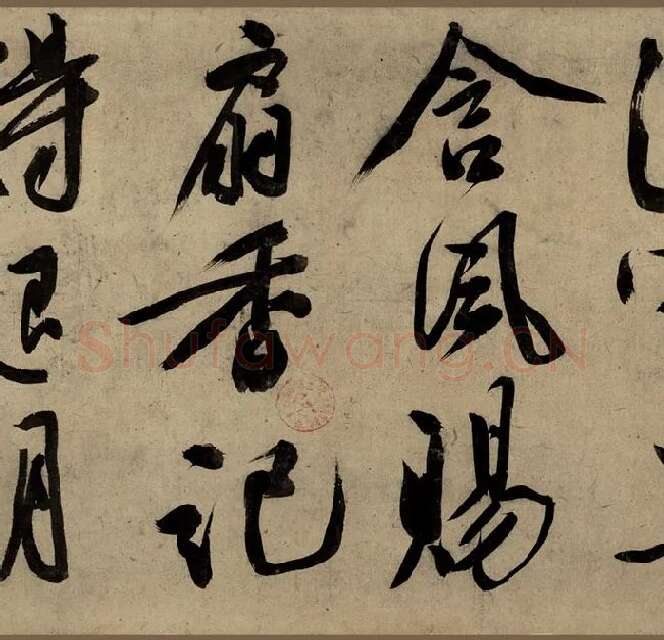 含風賜
扇香記
得退
Shufawang.CN